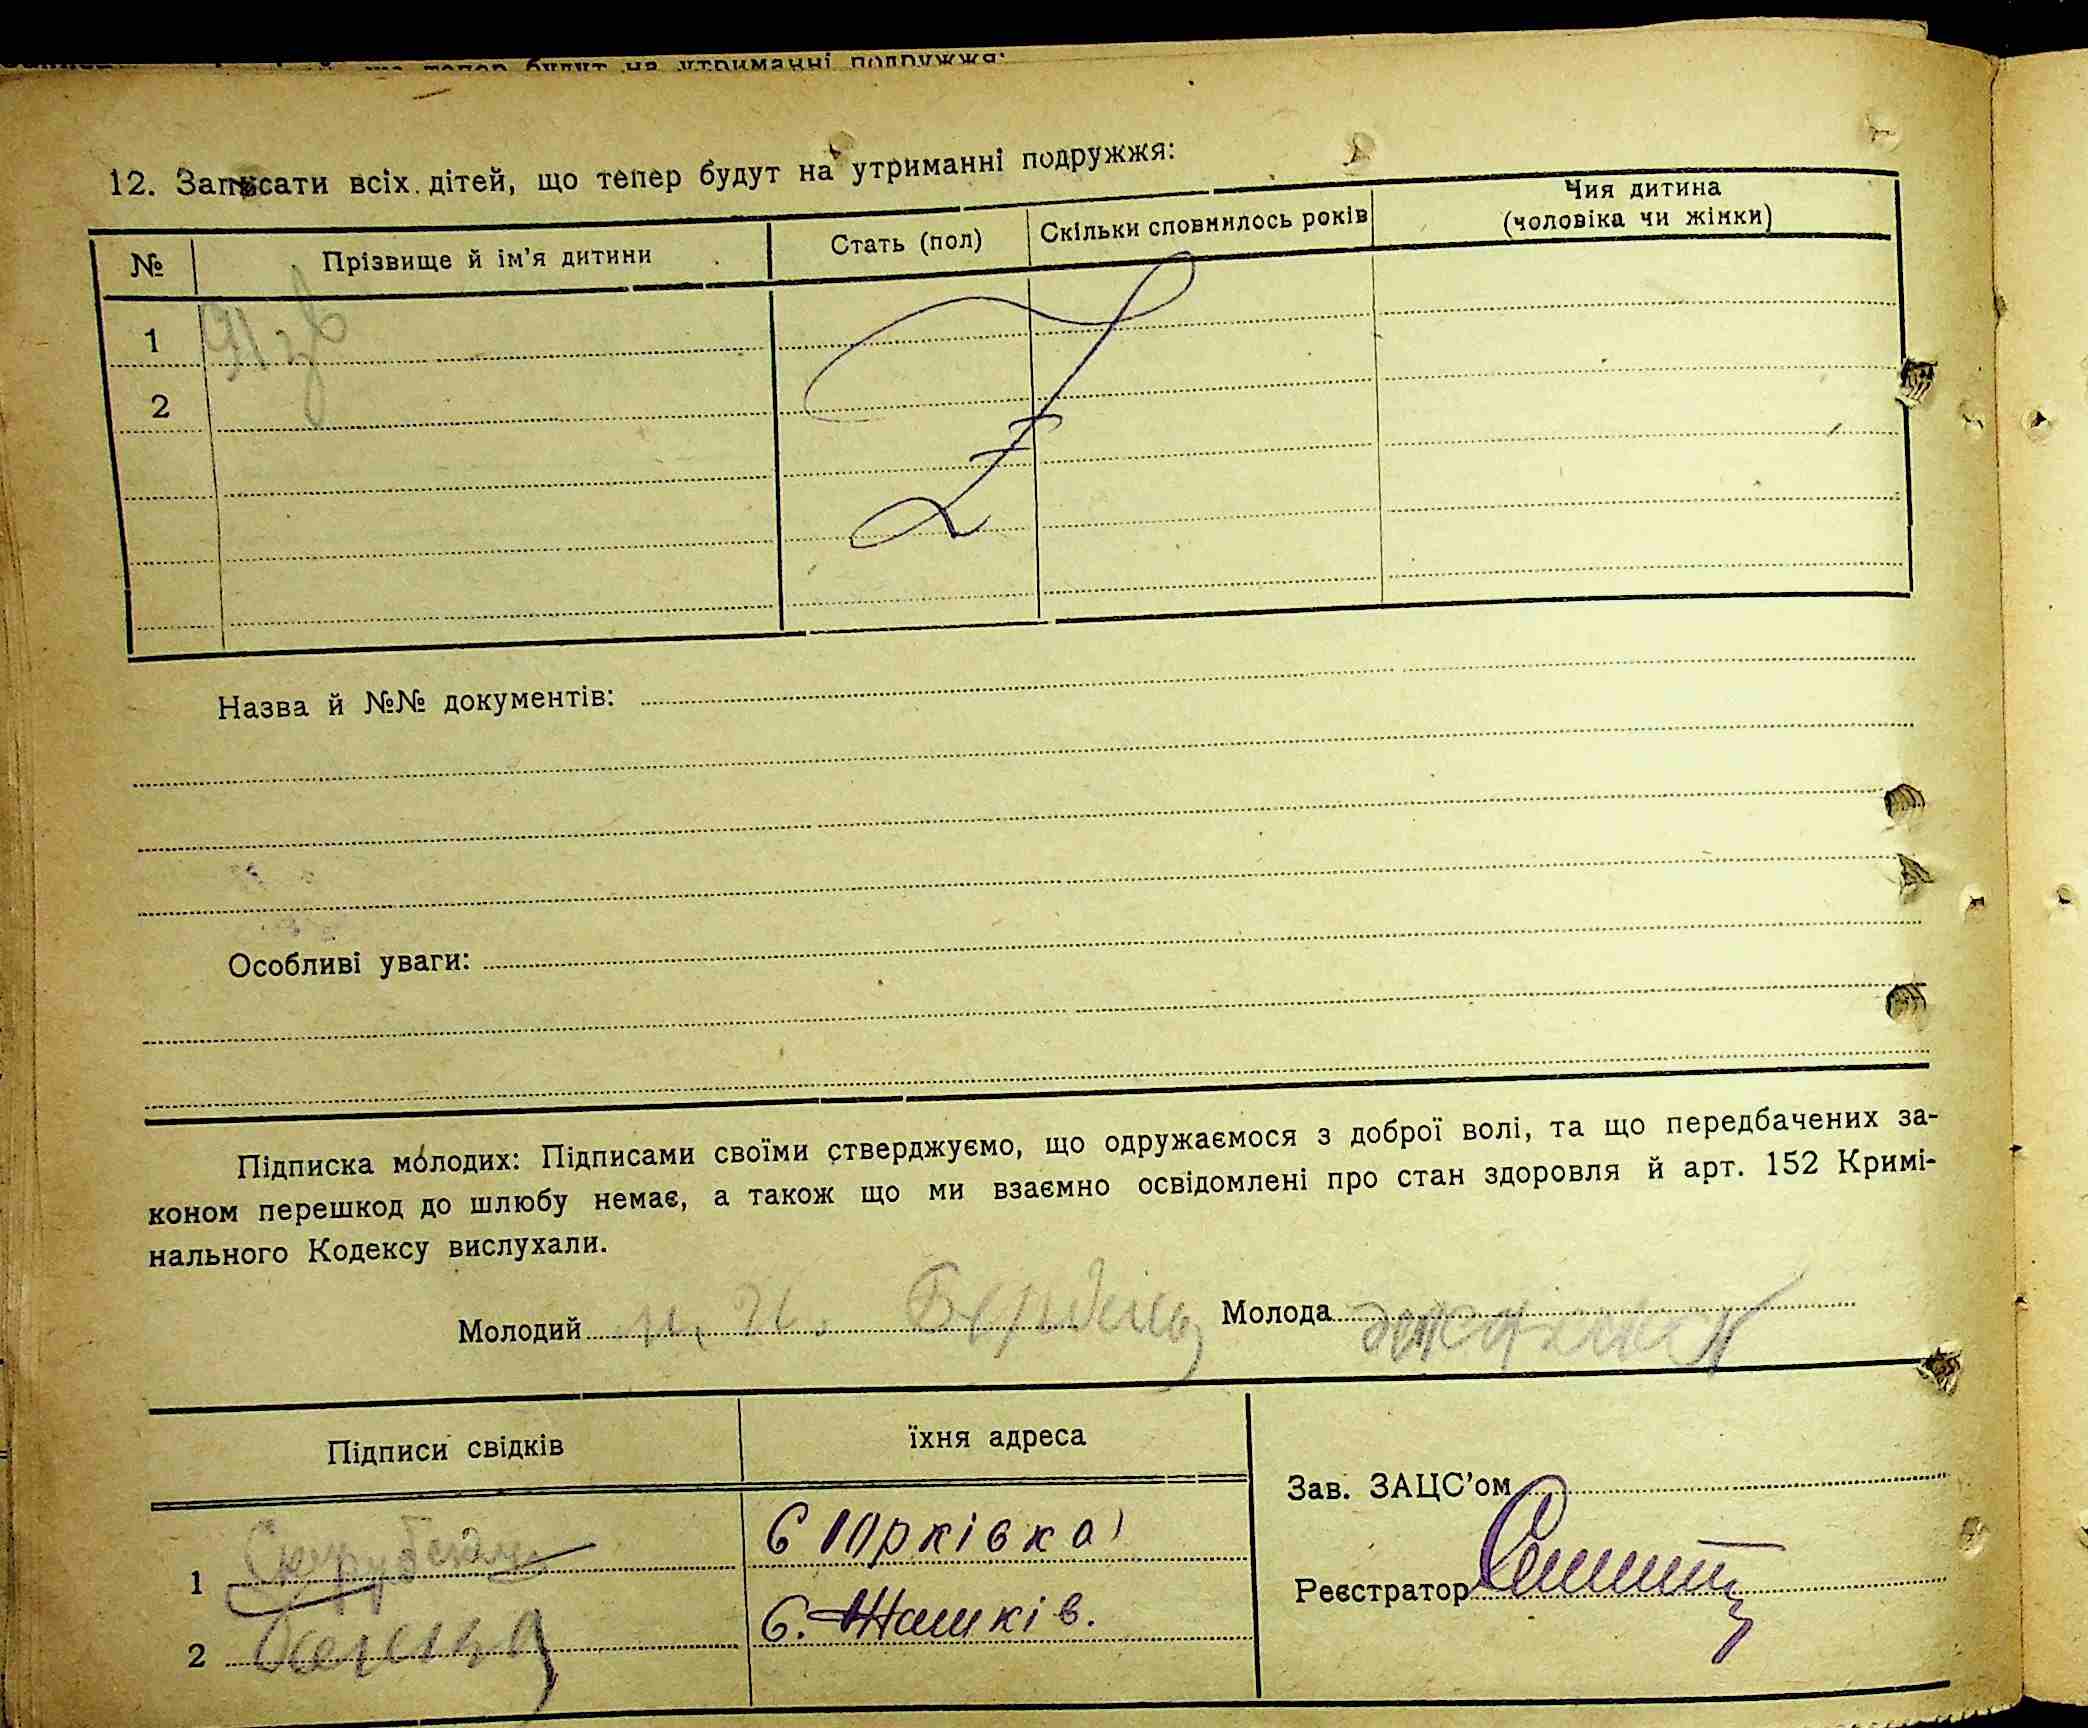 тепер будут на утриманні подружжя:
12. Записати всіх дітей, що тепер будут на утриманні подружжя:
№ Прізвище й ім'я дитини Стать (пол) Скільки сповнилось років Чия дитина
(чоловіка чи жінки)
1
2
Назва й №№ документів:
Особливі уваги:
Підписка молодих: Підписами своїми стверджуємо, що одружаємося з доброї волі, та що передбачених за-
коном перешкод до шлюбу немає, а також що ми взаємно освідомлені про стан здоровля й арт. 152 Кримі-
нального Кодексу вислухали.
Молодий Молода
Підписи свідків їхня адреса
Зав. ЗАЦС'ом
1 С Юрківка
Реєстратор
2 С. Жашків.